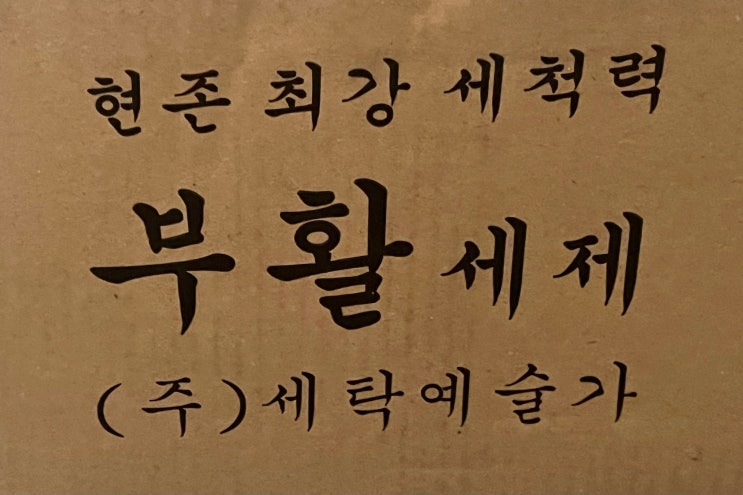 현존 최강 세척력
부활세제
(주)세탁예술가